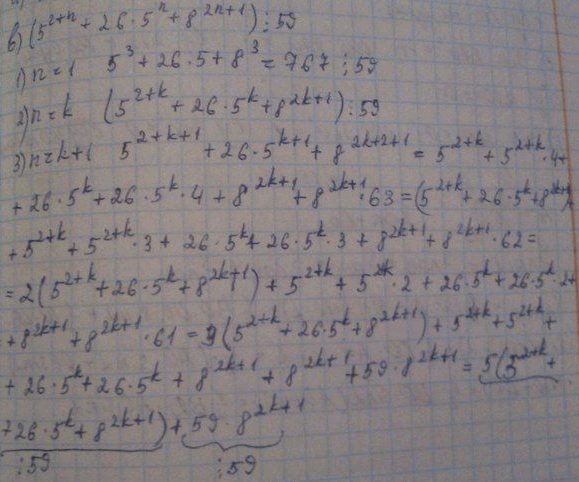 в) (5^{2+n} + 26·5^n + 8^{2n+1}) ⋮ 59
1) n=1 5^3 + 26·5 + 8^3 = 767 ⋮ 59
2) n=k (5^{2+k} + 26·5^k + 8^{2k+1}) ⋮ 59
3) n=k+1 5^{2+k+1} + 26·5^{k+1} + 8^{2k+2+1} = 5^{2+k} + 5^{2+k}·4+
+ 26·5^k + 26·5^k·4 + 8^{2k+1} + 8^{2k+1}·63 = (5^{2+k} + 26·5^k + 8^{2k+1})+
+ 5^{2+k} + 5^{2+k}·3 + 26·5^k + 26·5^k·3 + 8^{2k+1} + 8^{2k+1}·62 =
= 2(5^{2+k} + 26·5^k + 8^{2k+1}) + 5^{2+k} + 5^{2+k}·2 + 26·5^k + 26·5^k·2+
+ 8^{2k+1} + 8^{2k+1}·61 = 3(5^{2+k} + 26·5^k + 8^{2k+1}) + 5^{2+k} + 5^{2+k} +
+ 26·5^k + 26·5^k + 8^{2k+1} + 8^{2k+1} + 59·8^{2k+1} = 5(5^{2+k} +
+ 26·5^k + 8^{2k+1}) + 59·8^{2k+1}
⋮ 59 ⋮ 59